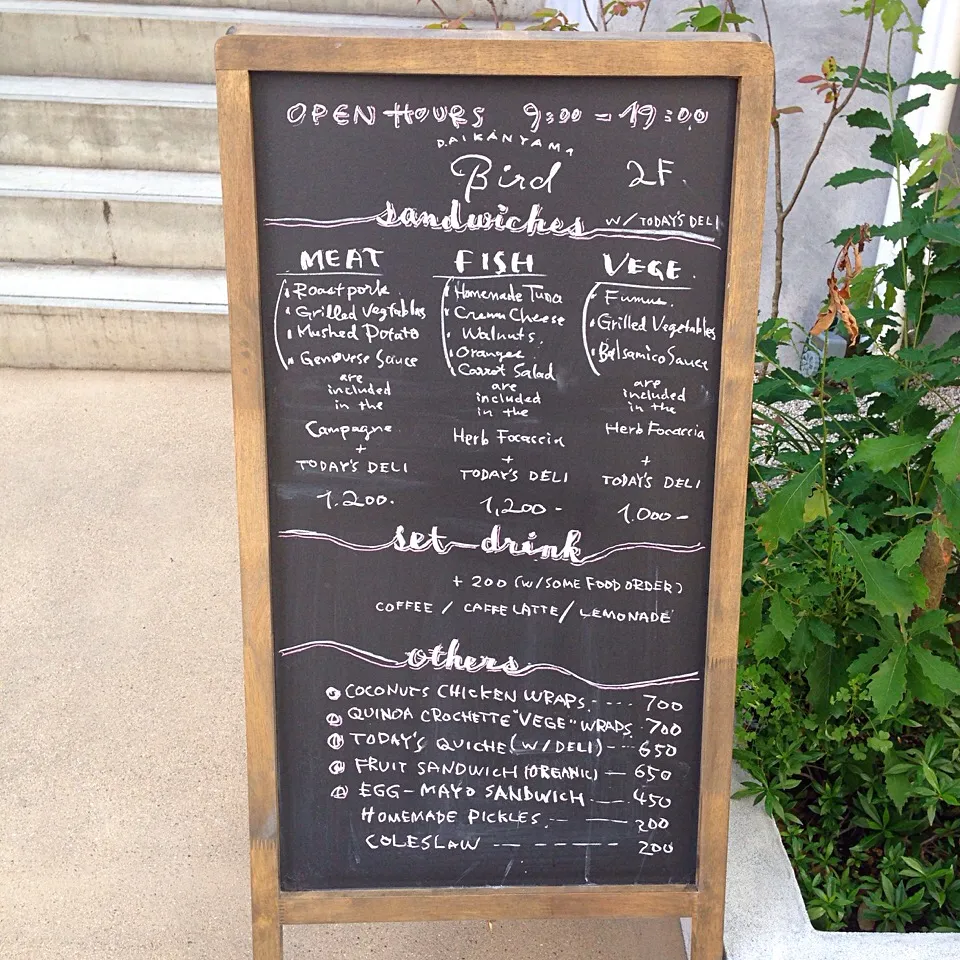 OPEN HOURS 9:00 - 19:00
DAIKANYAMA
Bird 2F.
sandwiches W/TODAY'S DELI
MEAT
Roast pork.
Grilled Vegetables
Mushed Potato
Genovese Sauce
are
included
in the
Campagne
+
TODAY'S DELI
1.200.
FISH
Homemade Tuna
Cream Cheese
Walnuts.
Oranges.
Carrot Salad
are
included
in the
Herb Focaccia
+
TODAY'S DELI
1,200 -
VEGE.
Fumus.
Grilled Vegetables
Balsamico Sauce
are
included
in the
Herb Focaccia
+
TODAY'S DELI
1.000 -
set-drink
+ 200 (W/SOME FOOD ORDER)
COFFEE / CAFFE LATTE / LEMONADE
others
COCONUTS CHICKEN WRAPS. ---- 700
QUINOA CROCHETTE "VEGE" WRAPS. 700
TODAY'S QUICHE (W/DELI) --- 650
FRUIT SANDWICH (ORGANIC) — 650
EGG-MAYO SANDWICH —— 450
HOMEMADE PICKLES. -- —— 200
COLESLAW -- ---- 200